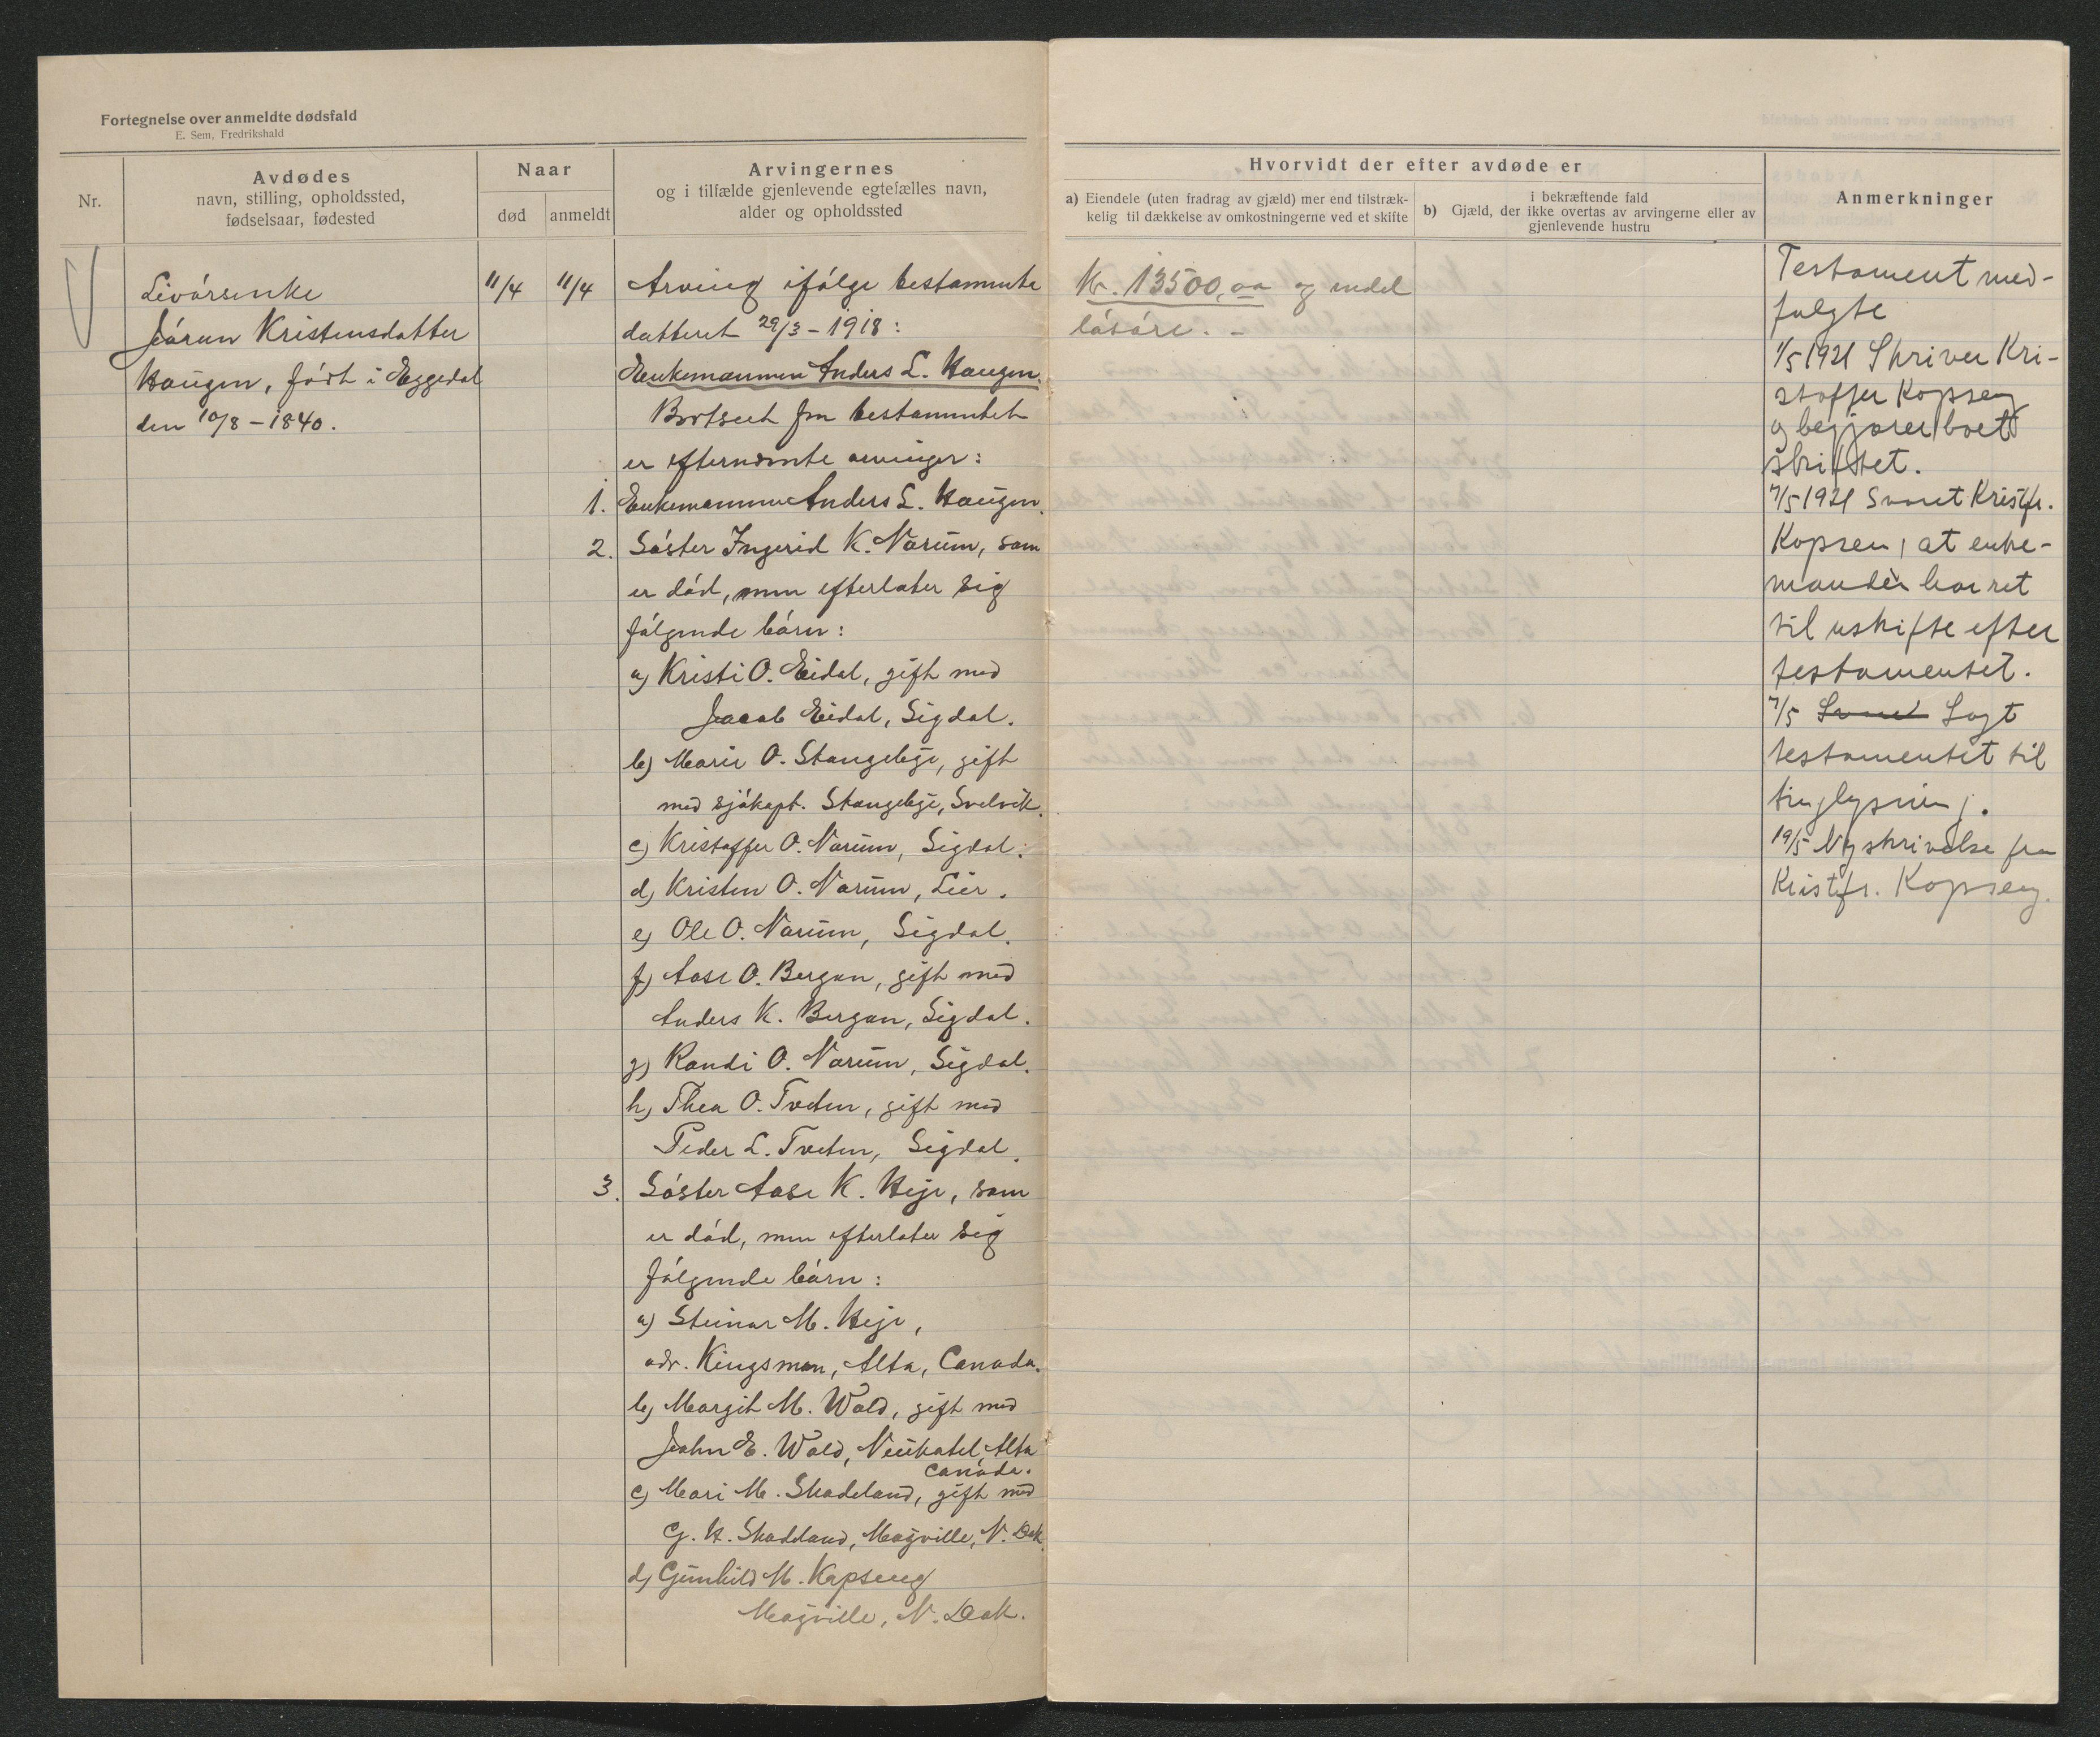 Fortegnelse over anmeldte dødsfald
E. Sem, Fredrikshald
Nr.
Avdødes
navn, stilling, opholdssted,
fødselsaar, fødested
Naar
død
anmeldt
Arvingernes
og i tilfælde gjenlevende egtefælles navn,
alder og opholdssted
Livórsenke
Jórun Kristensdatter
Haugen, född i Eggedal
den 10/8 - 1840.
11/4
11/4
Arving ifólge testamente
datteret 29/3 - 1918:
Enkemannen Anders L. Haugen.
Bortseet fra testamentet
er efternævnte arvinger:
1. Enkemannen Anders L. Haugen.
2. Sóster Ingerid K. Narum, som
er dód, men efterlater sig
fólgende bórn:
a) Kristi O. Eidal, gift med
Jacob Eidal, Sigdal.
b) Marie O. Stangebye, gift
med sjókapt. Stangebye, Svelvik.
c) Kristoffer O. Narum, Sigdal.
d) Kristen O. Narum, Lier.
e) Ole O. Narum, Sigdal.
f) Aase O. Bergan, gift med
Anders K. Bergan, Sigdal.
g) Randi O. Narum, Sigdal.
h) Thea O. Tveten, gift med
Peder L. Tveten, Sigdal.
3. Sóster Aase K. Heje, som
er dód, men efterlater sig
fólgende bórn:
a) Steinar M. Heje,
adr. Kingsman, Alta, Canada.
b) Margit M. Wold, gift med
John E. Wold, Neukatel, Alta
Canada.
c) Mari M. Skadeland, gift med
G. H. Skadeland, Mayville, N. Dak.
d) Gunhild M. Kopseng
Mayville, N. Dak.
Hvorvidt der efter avdøde er
a) Eiendele (uten fradrag av gjæld) mer end tilstræk-
kelig til dækkelse av omkostningerne ved et skifte
i bekræftende fald
b) Gjæld, der ikke overtas av arvingerne eller av
gjenlevende hustru
Anmerkninger
Kr. 13500,00 og endel
lósóre. -
Testament med-
fulgte
1/5 1921 Skriver Kri-
stoffer Kopseng
og begjærer boet
skiftet.
7/5 1921 Svaret Kristfr.
Kopsen, at enke-
manden har ret
til uskifte efter
testamentet.
7/5 Svaret Lagt
testamentet til
tinglysning.
19/5 Ny skrivelse fra
Kristfr. Kopseng.